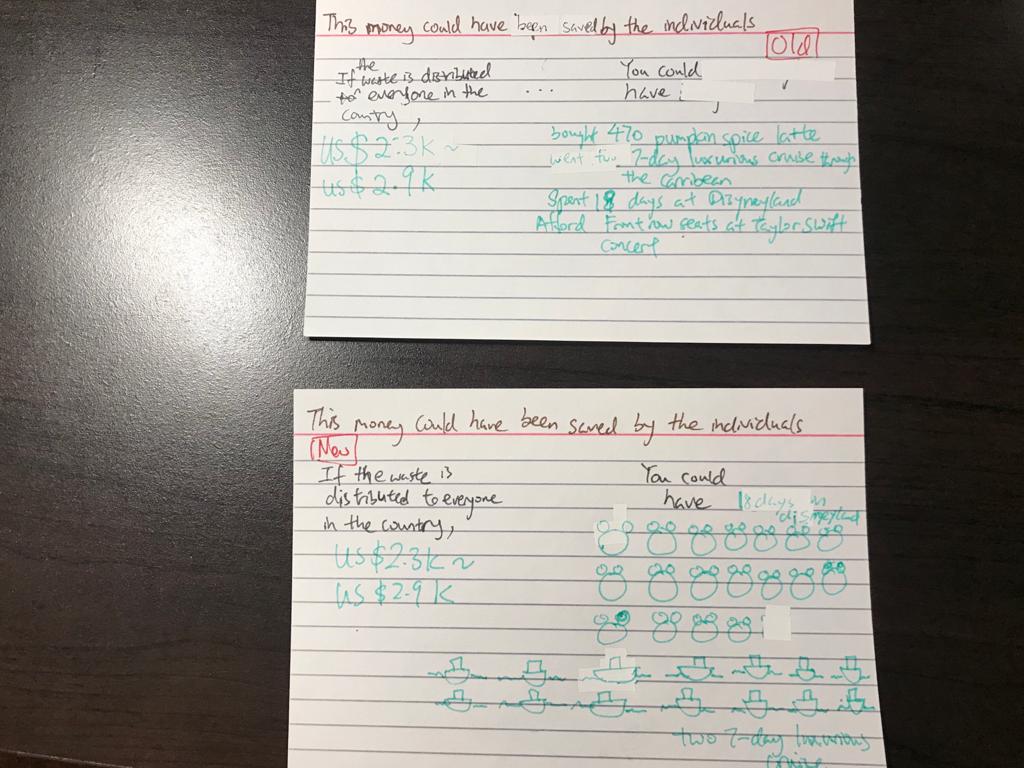 This money could have been saved by the individuals
Old
the
If waste is distributed
everyone in the
country,
...
You could
have :
US$ 2.3K ~
US$ 2.9K
bought 470 pumpkin spice latte
went two 7-day luxurious cruise through
the Carribean
Spent 18 days at Disyneyland
Afford Front row seats at Taylor Swift
concert
This money could have been saved by the individuals
New
If the waste is
distributed to everyone
in the country,
US$2.3K ~
US $2.9K
You could
have 18 days in
disneyland
two 7-day luxurious